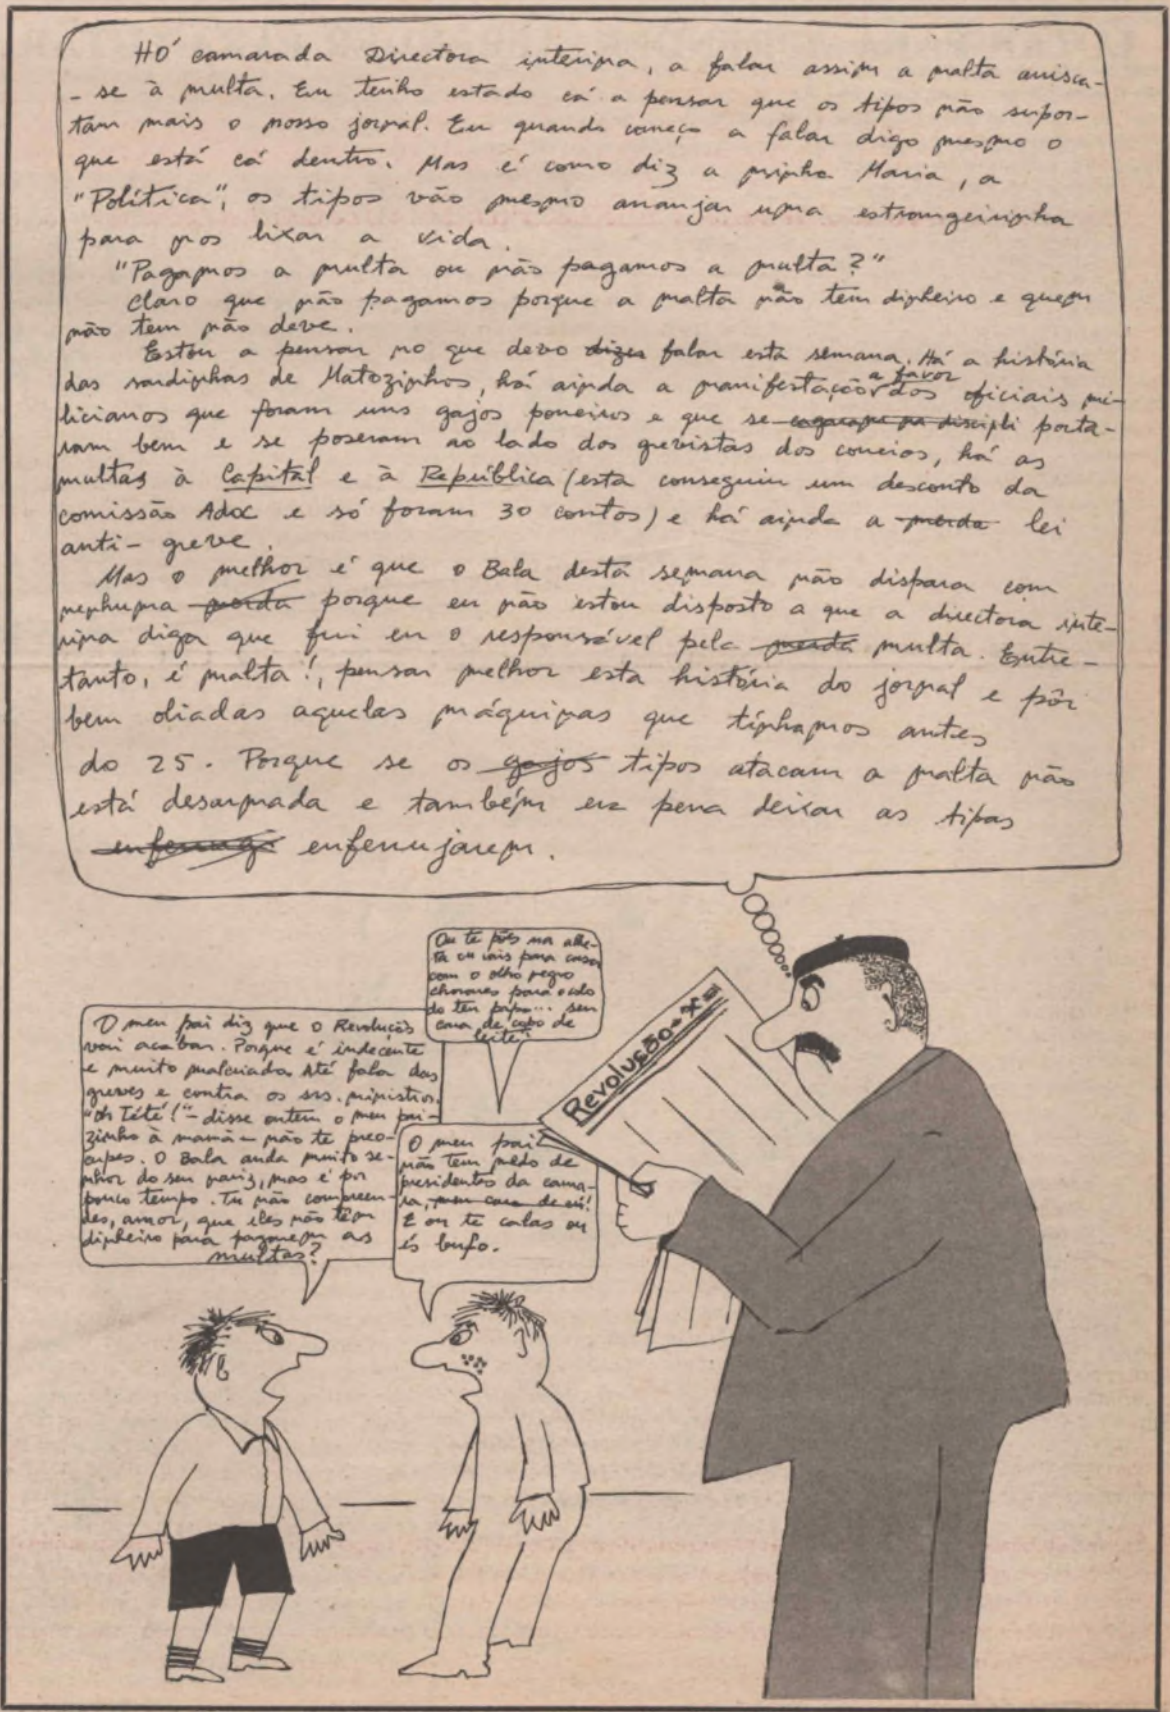 HÓ camarada Directora interina, a falar assim a malta arrisca-
-se à multa. Eu tenho estado cá a pensar que os tipos não supor-
tam mais o nosso jornal. Eu quando começo a falar digo mesmo o
que está cá dentro. Mas é como diz a minha Maria, a
"Política", os tipos vão mesmo arranjar uma estrangeirinha
para nos lixar a vida.
"Pagamos a multa ou não pagamos a multa?"
Claro que não pagamos porque a malta não tem dinheiro e quem
não tem não deve.
Estou a pensar no que devo dizer falar esta semana. Há a história
das sardinhas de Matozinhos, há ainda a manifestação a favor dos oficiais mi-
licianos que foram uns gajos porreiros e que se cagaram na discipli porta-
ram bem e se poseram ao lado dos grevistas dos correios, há as
multas à Capital e à República (esta conseguiu um desconto da
comissão Adoc e só foram 30 contos) e há ainda a merda lei
anti-greve.
Mas o melhor é que o Bala desta semana não dispara com
nenhuma merda porque eu não estou disposto a que a directora inte-
rina diga que fui eu o responsável pela merda multa. Entre-
tanto, é malta!, pensar melhor esta história do jornal e pôr
bem oliadas aquelas máquinas que tínhamos antes
do 25. Porque se os gajos tipos atacam a malta não
está desarmada e também era pena deixar as tipas
enferrugi enferrujarem.
Ou te pões na alhe-
ta ou vais para casa
com o olho negro
chorares para o colo
do teu papa... seu
cara de copo de
leite!
O meu pai diz que o Revolução
vai acabar. Porque é indecente
e muito malcriado. Até fala das
greves e contra os srs. ministros.
"Oh Tété!" - disse ontem o meu pai-
zinho à mamã - não te preo-
cupes. O Bala anda muito se-
nhor do seu nariz, mas é por
pouco tempo. Tu não compreen-
des, amor, que eles não têm
dinheiro para pagarem as
multas?
O meu pai
não tem medo de
presidentes da cama-
ra, meu cara de cú!
E ou te calas ou
és bufo.
Revolução